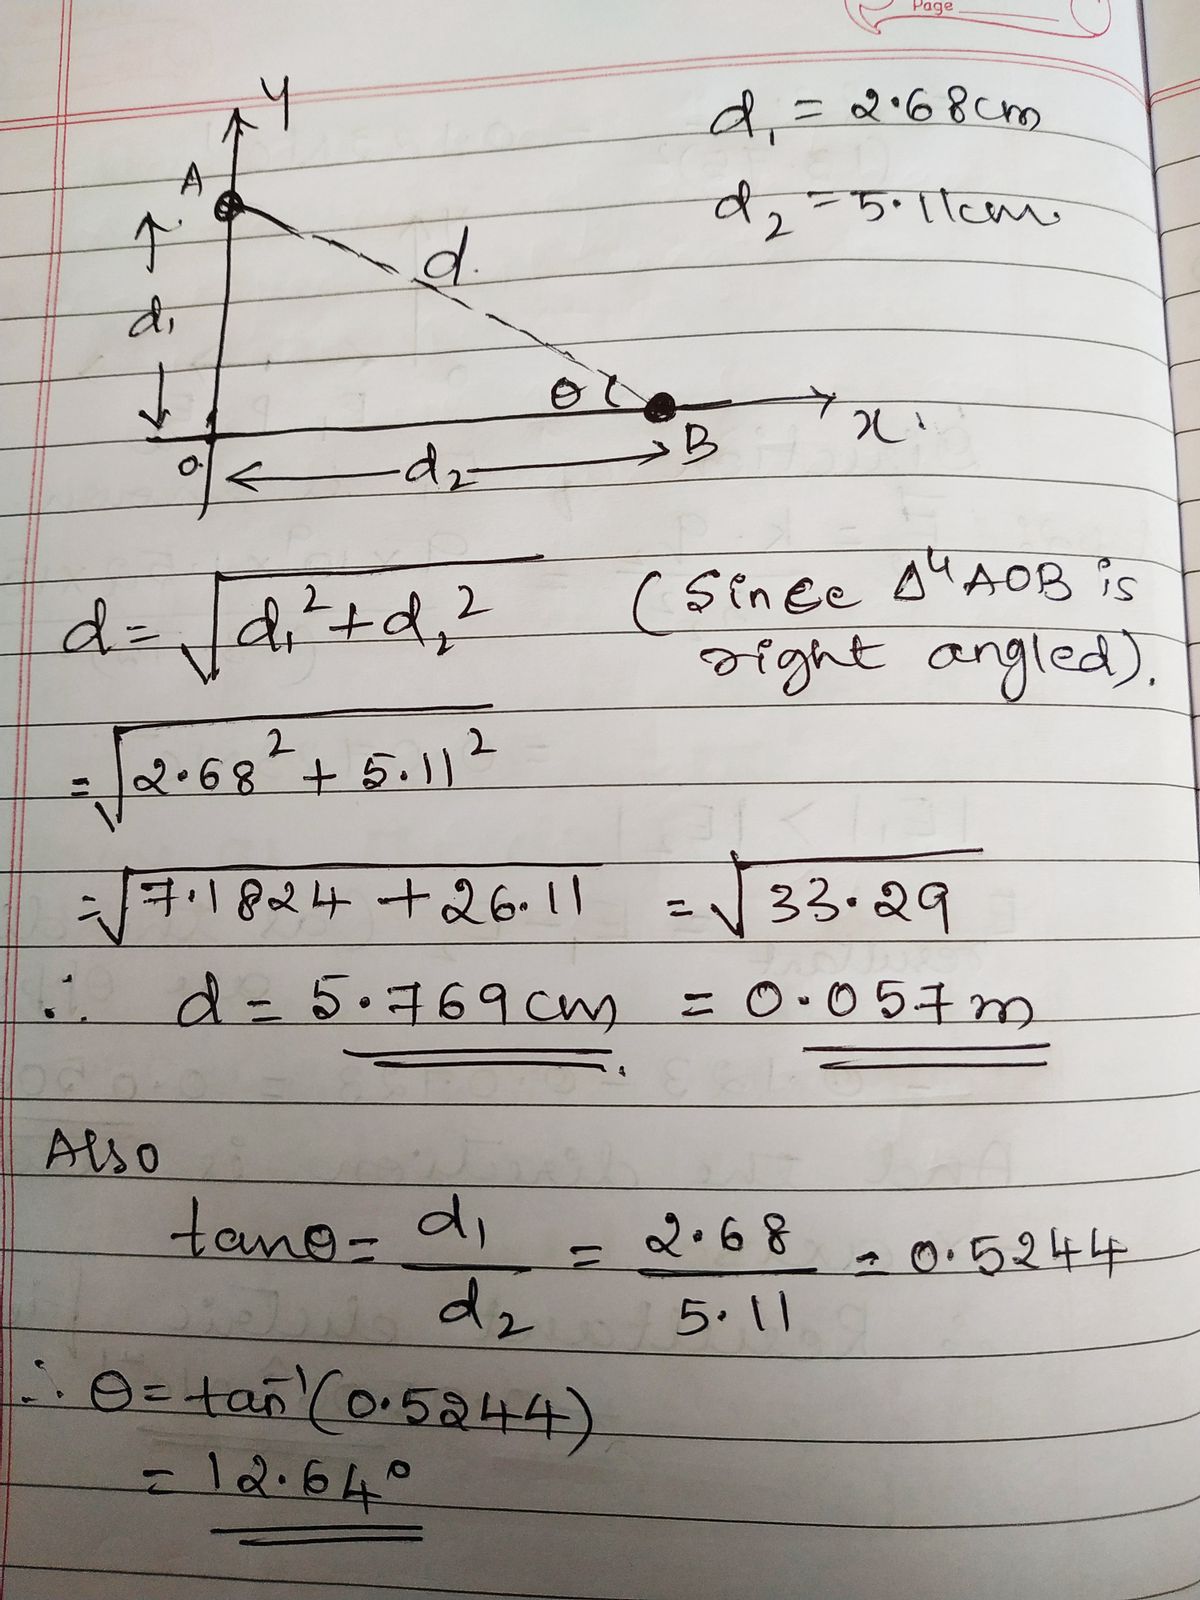 Page
Y
d₁ = 2.68cm
A
d₂ = 5.11cm.
d.
d₁
θ
x.
B
O.
d₂
d = √(d₁² + d₂²) (Since Δˡᵉ AOB is
right angled).
= √(2.68² + 5.11²)
= √(7.1824 + 26.11) = √33.29
∴ d = 5.769cm. = 0.057m
Also
tanθ = d₁/d₂ = 2.68/5.11 = 0.5244
∴ θ = tan⁻¹(0.5244)
= 12.64°